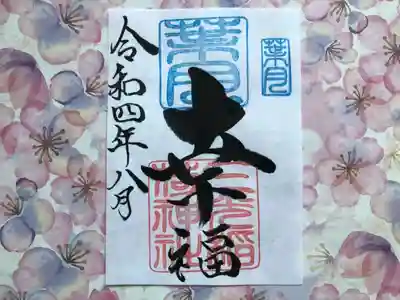 葉月
葉月
幸福
稲荷神社
令和四年八月